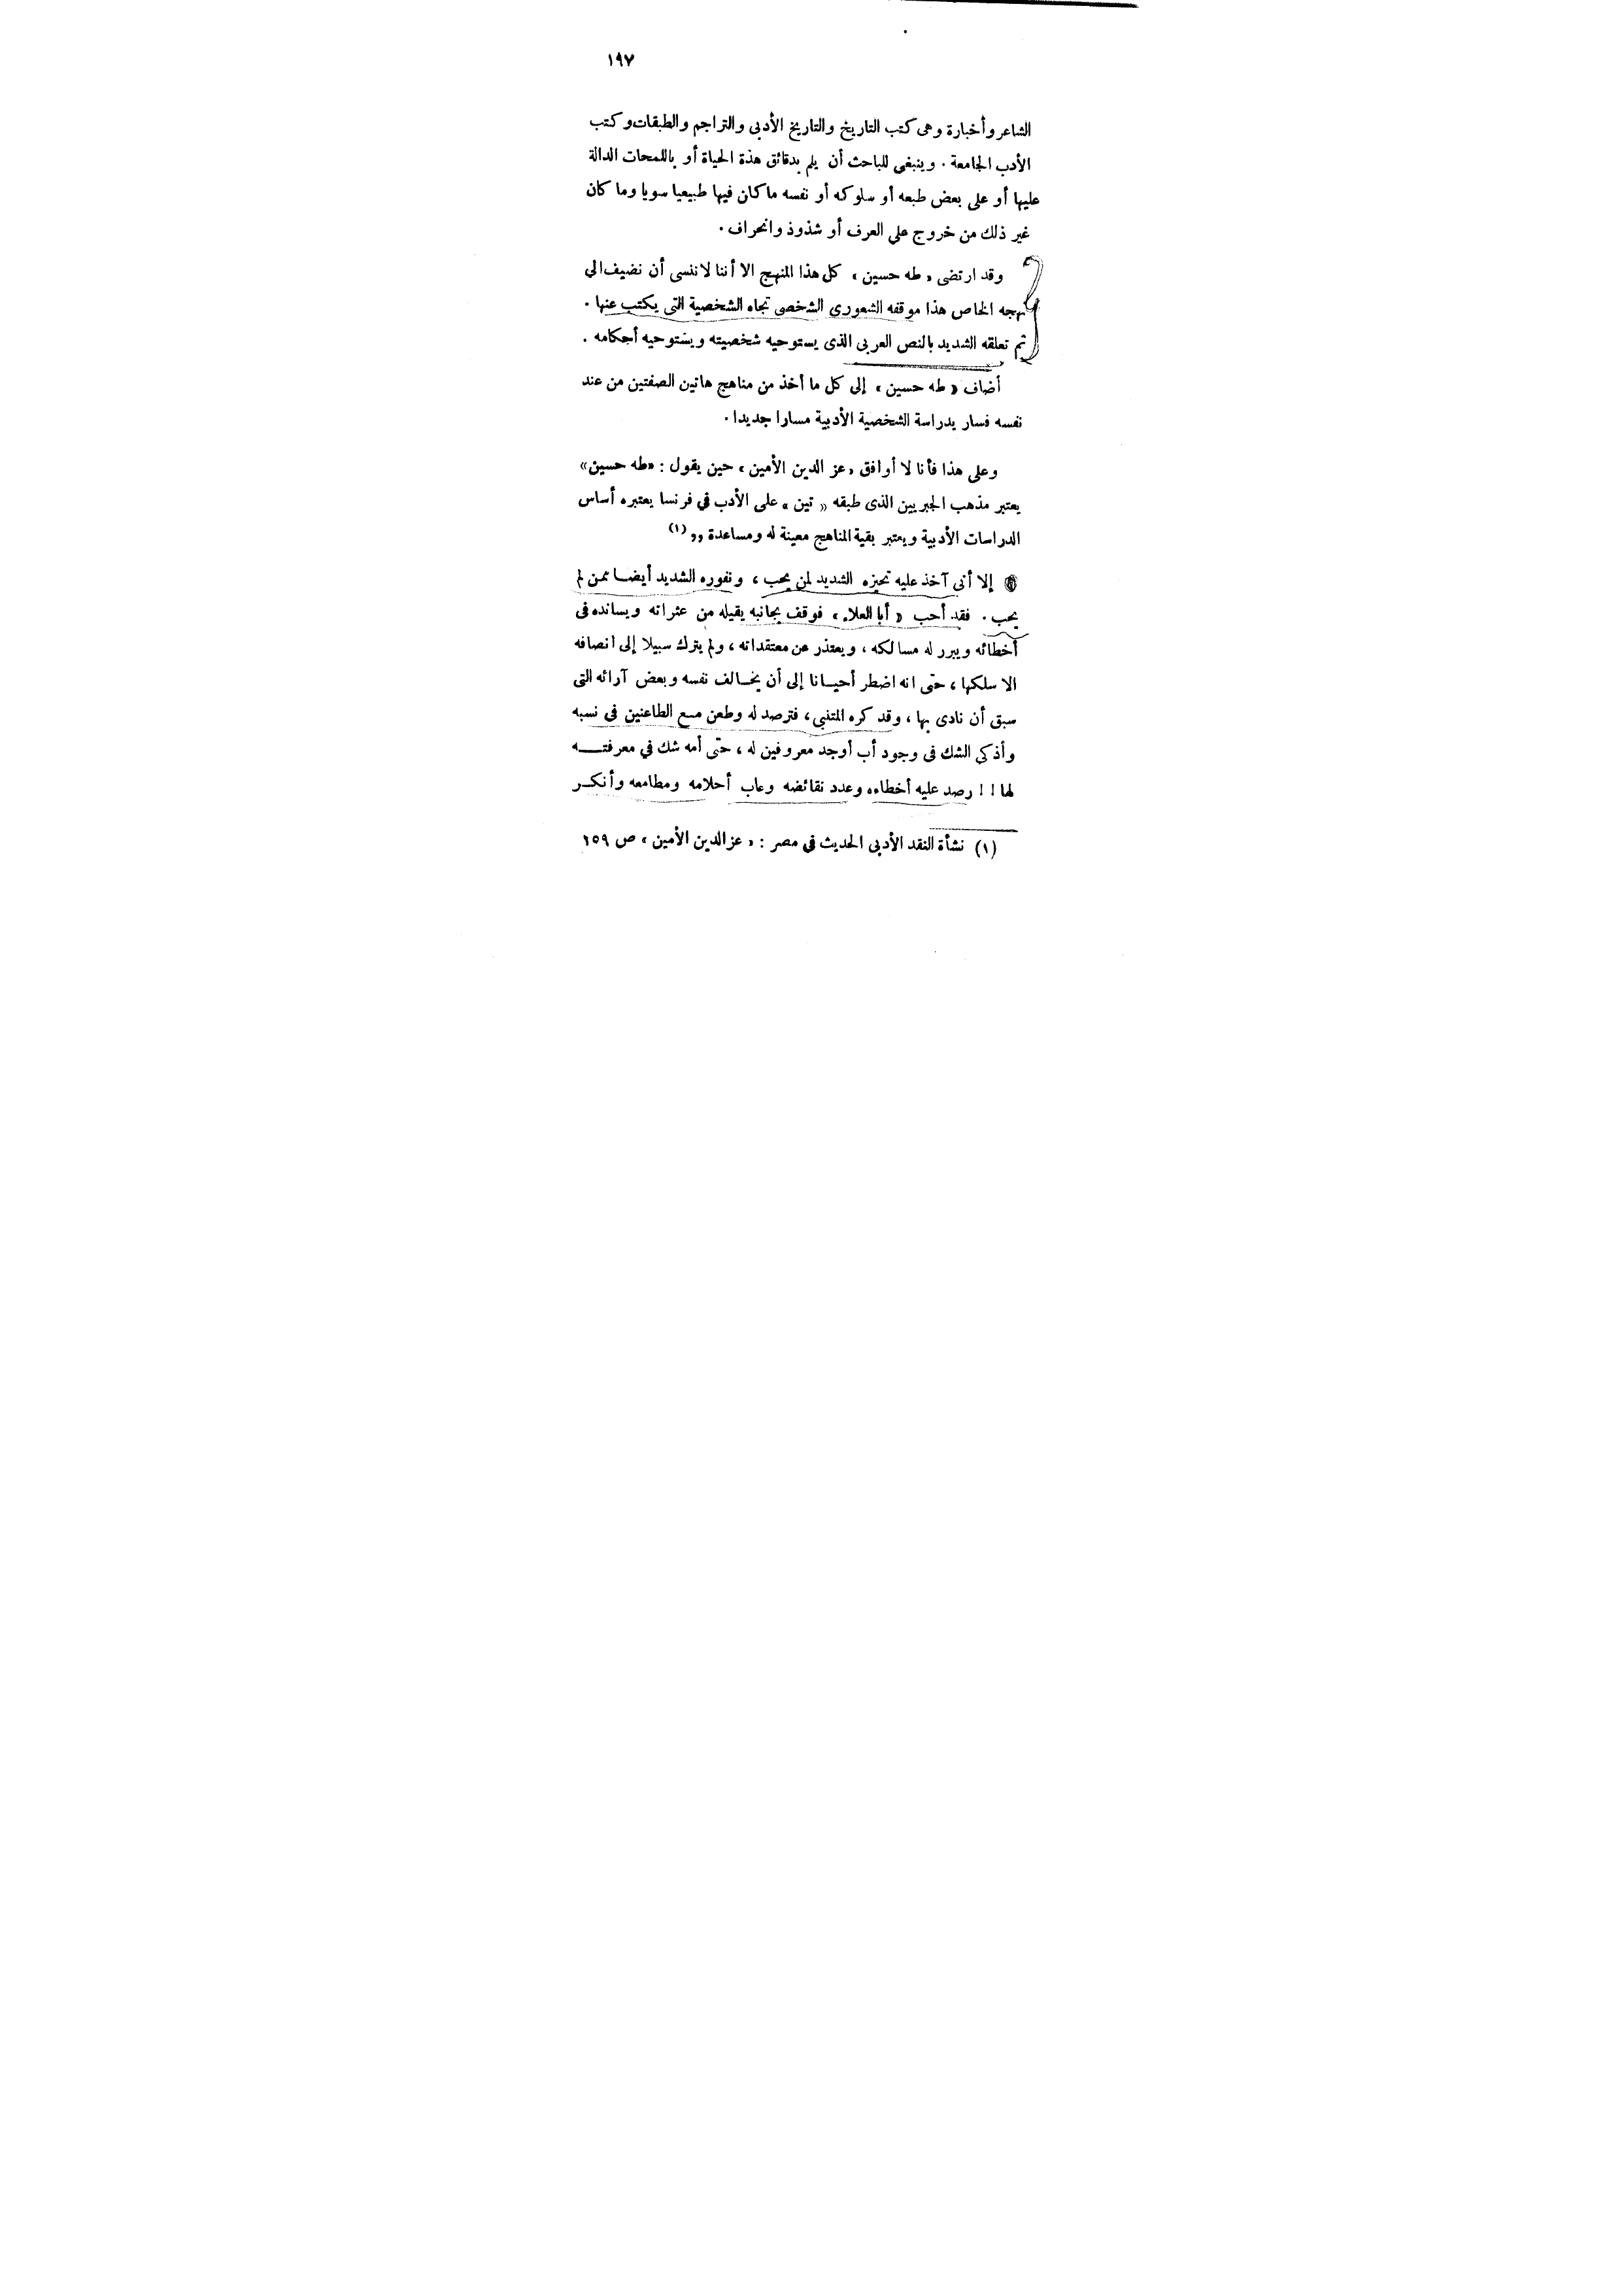 ١٩٧
الشاعر وأخبارة وهى كتب التاريخ والتاريخ الأدبى والتراجم والطبقات وكتب
الأدب الجامعة . وينبغى للباحث أن يلم بدقائق هذة الحياة أو باللمحات الدالة
عليها أو على بعض طبعه أو سلوكه أو نفسه ما كان فيها طبيعيا سويا وما كان
غير ذلك من خروج على العرف أو شذوذ وانحراف .
وقد ارتضى « طه حسين » كل هذا المنهج الا أننا لاننسى أن نضيف الي
نهجه الخاص هذا موقفه الشعورى الشخصى تجاه الشخصية التى يكتب عنها .
ثم تعلقه الشديد بالنص العربى الذى يستوحيه شخصيته ويستوحيه أحكامه .
أضاف « طه حسين » إلى كل ما أخذ من مناهج هاتين الصفتين من عند
نفسه فسار بدراسة الشخصية الأدبية مسارا جديدا .
وعلى هذا فأنا لا أوافق « عز الدين الأمين » حين يقول : «طه حسين»
يعتبر مذهب الجبريين الذى طبقه « تين » على الأدب في فرنسا يعتبره أساس
الدراسات الأدبية ويعتبر بقية المناهج معينة له ومساعدة ,, (١)
إلا أنى آخذ عليه تحيزه الشديد لمن يحب ، ونفوره الشديد أيضا ممن لم
يحب . فقد أحب « أبا العلاء » فوقف بجانبه يقيله من عثراته ويسانده فى
أخطائه ويبرر له مسالكه ، ويعتذر عن معتقداته ، ولم يترك سبيلا إلى انصافه
الا سلكها ، حتى انه اضطر أحيانا إلى أن يخالف نفسه وبعض آرائه التى
سبق أن نادى بها ، وقد كره المتنبى ، فترصد له وطعن مع الطاعنين فى نسبه
وأذكي الشك فى وجود أب أوجد معروفين له ، حتى أمه شك في معرفته
لها ! ! رصد عليه أخطاءه وعدد نقائضه وعاب أحلامه ومطامعه وأنكر
(١) نشأة النقد الأدبى الحديث في مصر : « عز الدين الأمين » ص ١٥٩